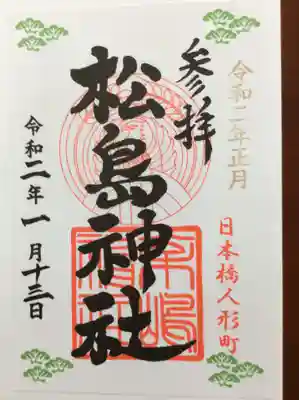 令和二年正月
参拝
日本橋人形町
松島神社
令和二年一月十三日